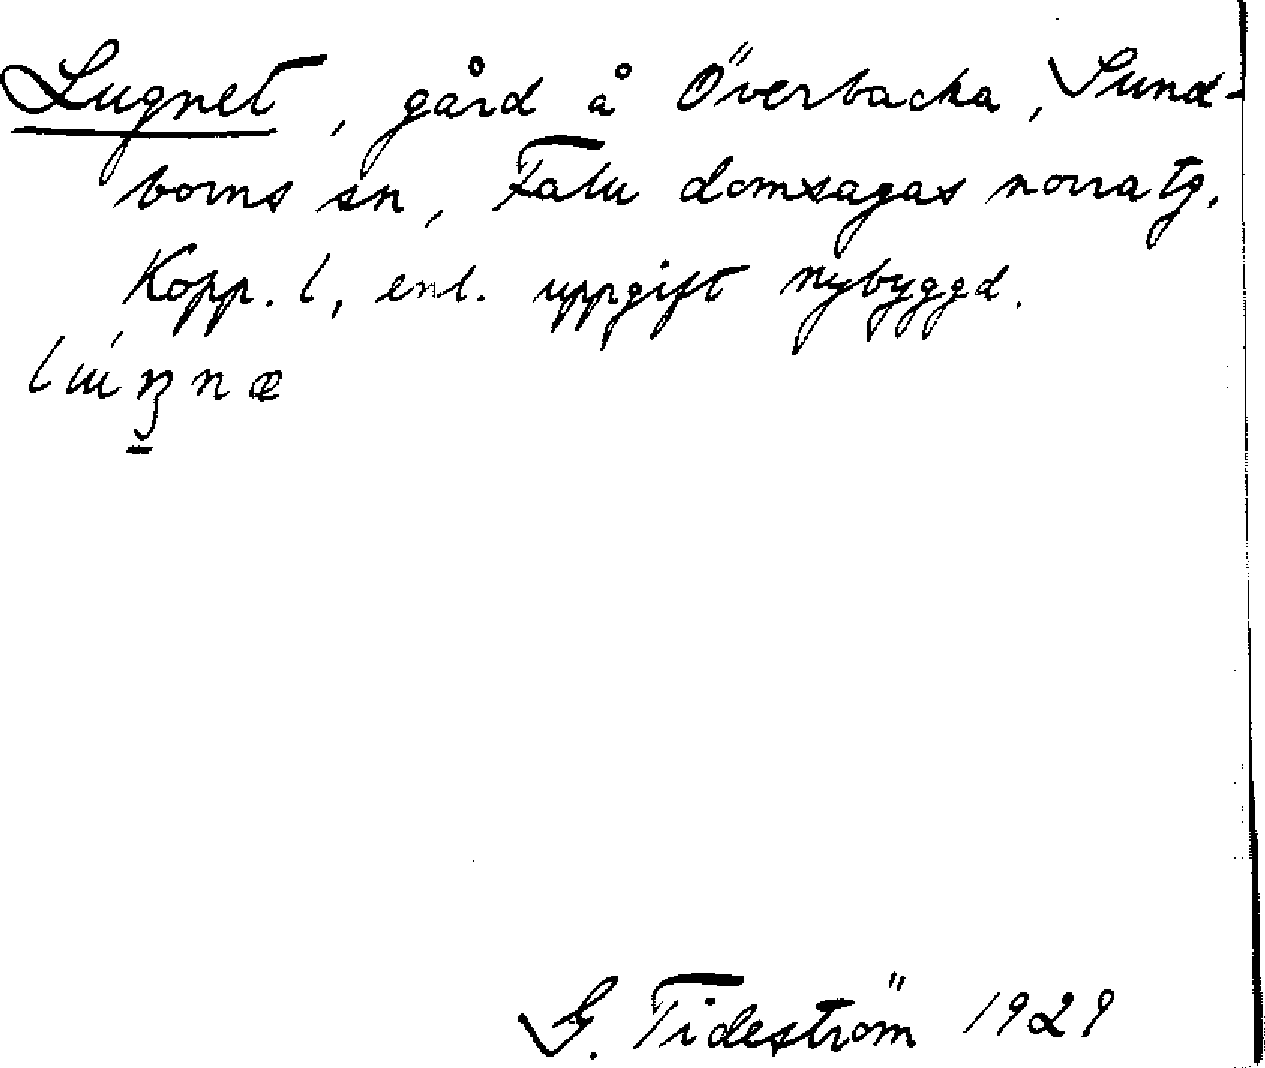 Lugnet, gård å Överbacka, Sund-
borns sn, Falu domsagas norra tg,
Kopp. l, enl. uppgift nybyggd.
G. Tideström 1929